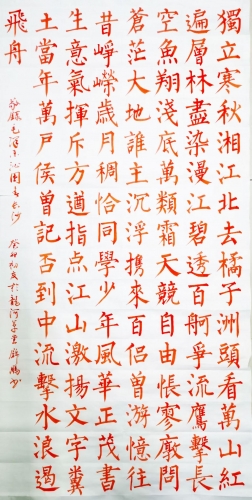 獨立寒秋湘江北去橘子洲頭看萬山紅
遍層林盡染漫江碧透百舸爭流鷹擊長
空魚翔淺底萬類霜天競自由悵寥廓問
蒼茫大地誰主沉浮攜來百侶曾游憶往
昔崢嶸歲月稠恰同學少年風華正茂書
生意氣揮斥方遒指点江山激揚文字糞
土當年萬戶侯曾記否到中流擊水浪遏
飛舟
敬錄毛澤東沁園春長沙 癸卯初夏於龍河草堂